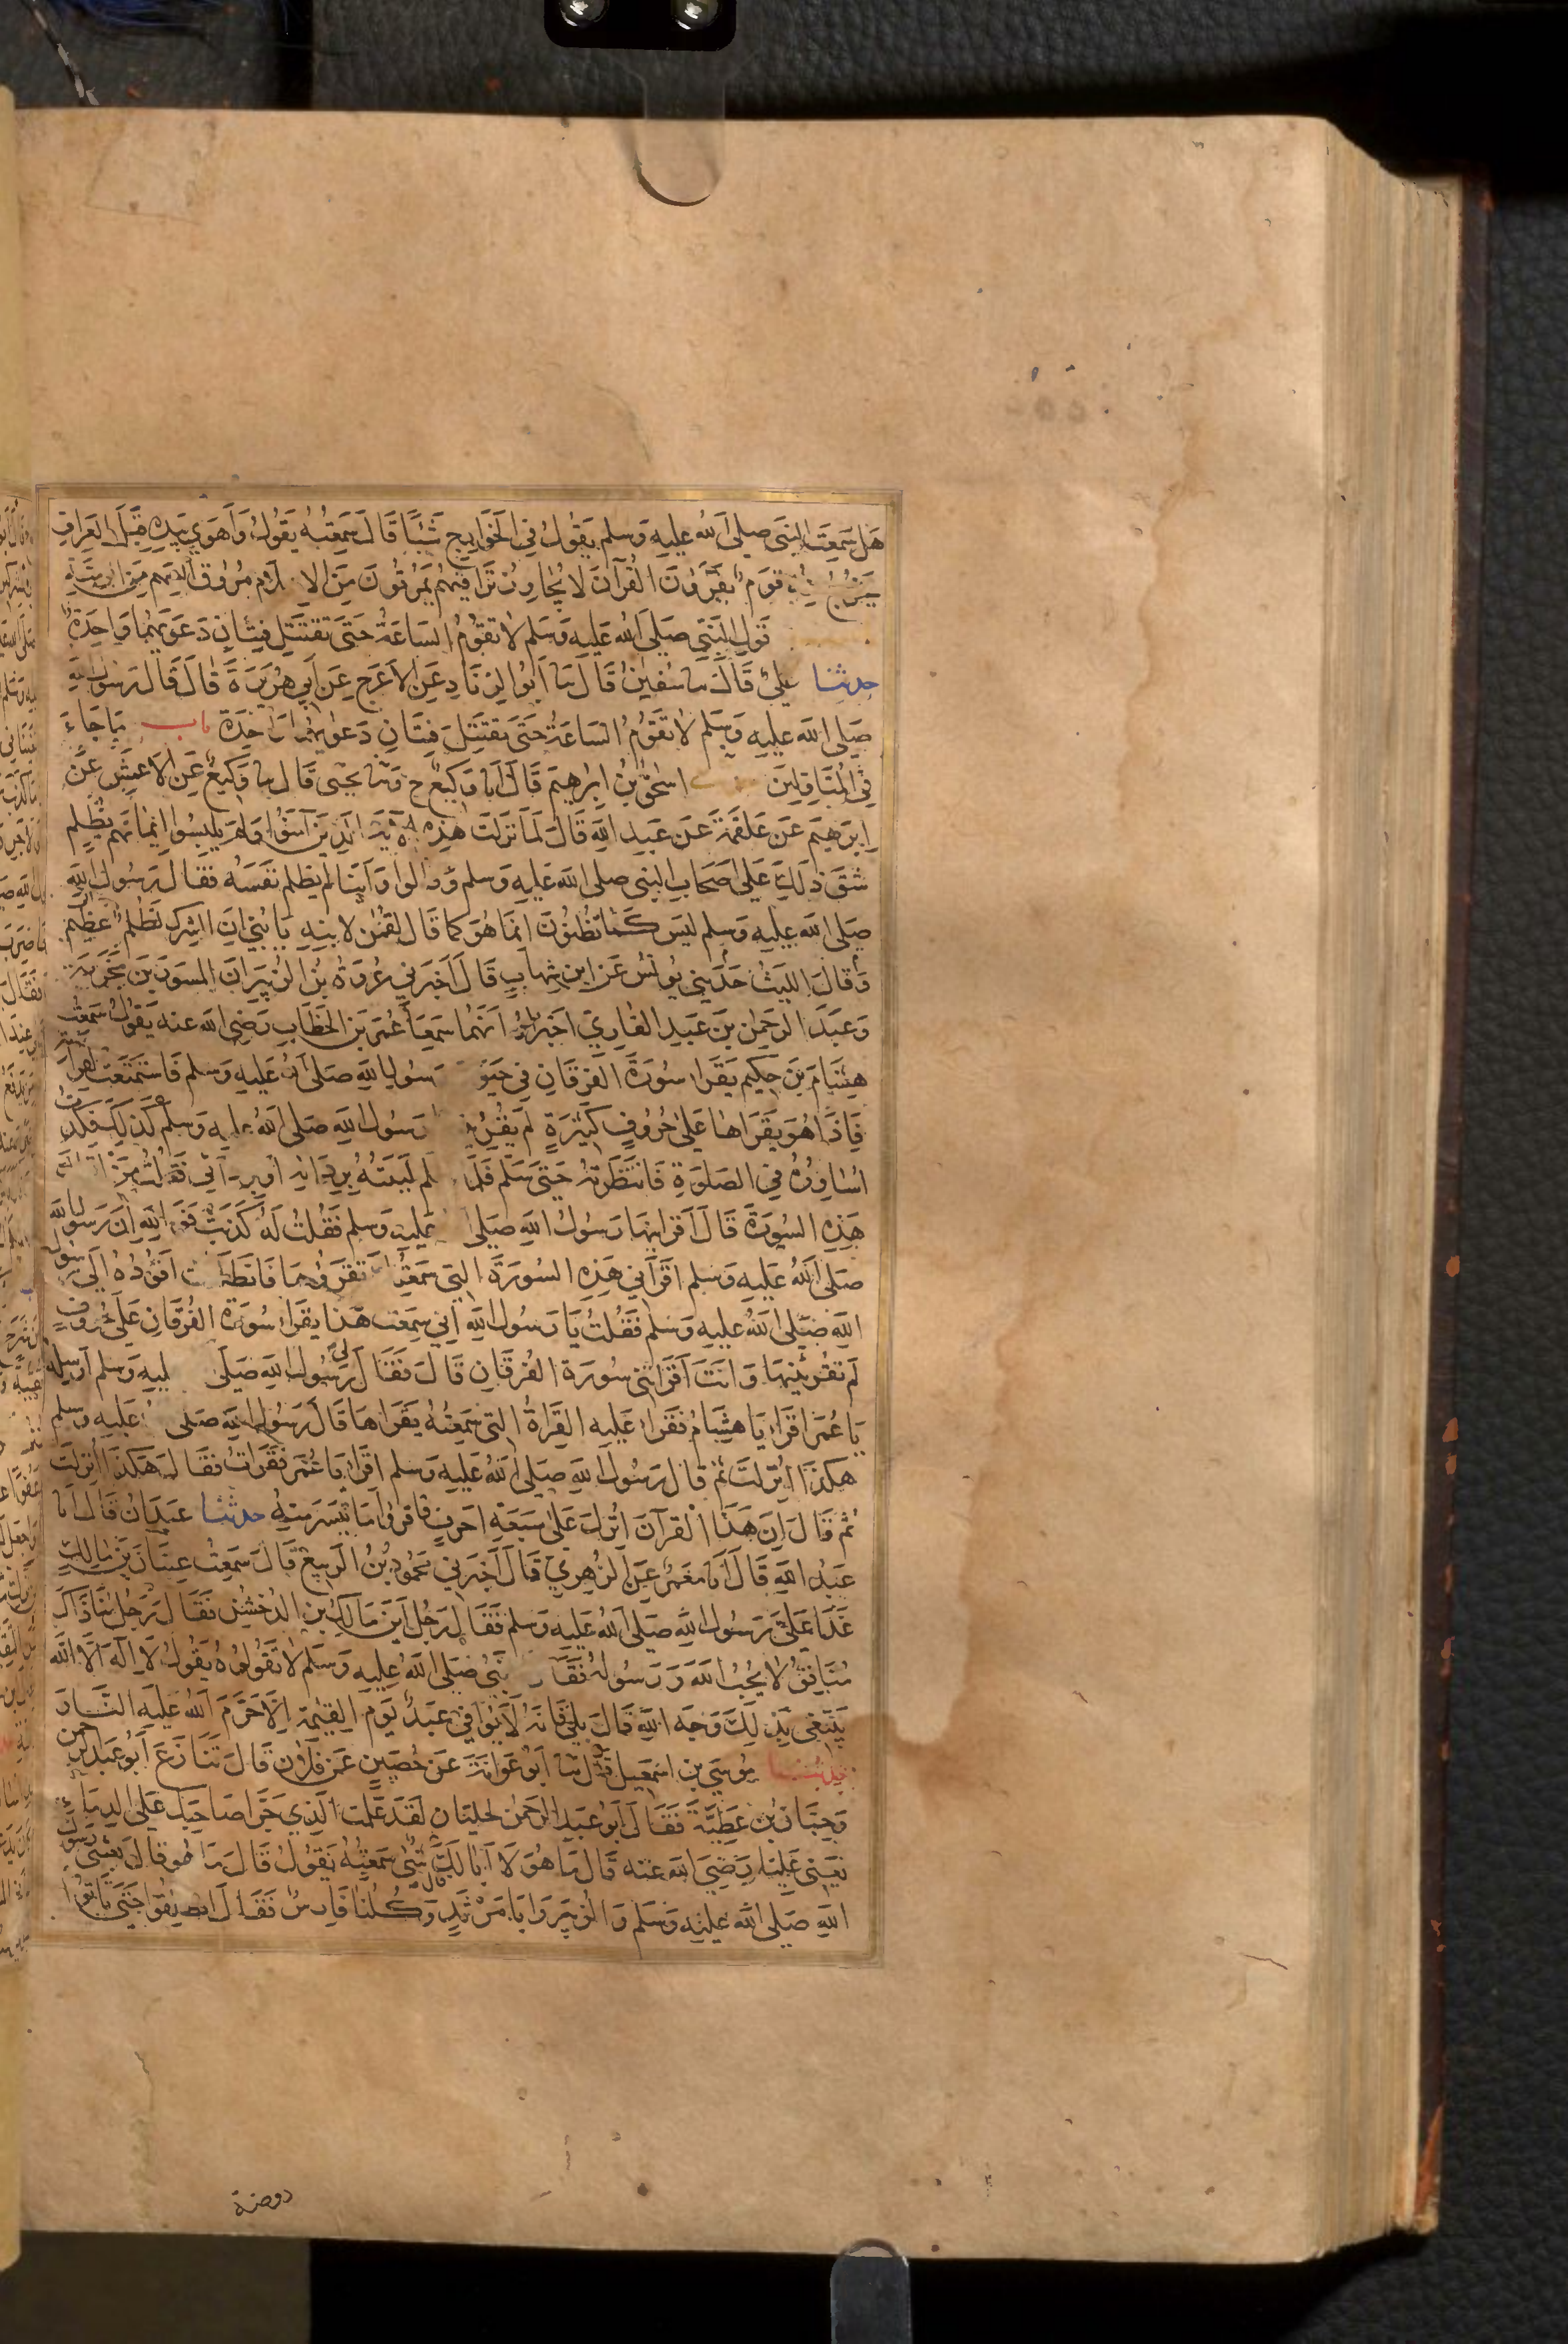 هَل سَمِعْتَ النَّبِيَّ صلى الله عليه وسلم يَقُولُ فِي الْخَوَارِجِ شَيْئًا قَالَ سَمِعْتُهُ يَقُولُ وَأَهْوَى بِيَدِهِ قِبَلَ الْعِرَاقِ
يَخْرُجُ قَوْمٌ يَقْرَؤُنَ الْقُرْآنَ لَا يُجَاوِزُ تَرَاقِيَهُمْ يَمْرُقُونَ مِنَ الا لام مُرُوقَ السهم مِنَ الرمية
قَوْلِ النَّبِيِّ صَلَى اللهُ عَلَيه وَسَلم لَا تَقُومُ السَاعَةُ حَتَّى تَقْتَتِلَ فِئَتَانِ دَعْوَتُهُمَا وَاحِدَةٌ
حدثنا عَلِيٌّ قَالَ نا سُفين قَالَ نا أَبُو الزِّنَادِ عَنِ الْأَعْرَجِ عَنْ أَبِي هُرَيْرَةَ قَالَ قَالَ رَسُولُ اللهِ
صَلى الله عليه وسلم لَا تَقُومُ السَاعَةُ حَتَّى تقْتَتِلَ فِئَتَانِ دَعواهُمَا وَاحِدَة باب مَا جَاءَ
فِي الْمُتَأوِّلِينَ اسحٰقُ بْنُ ابرهِيمَ قَالَ انا وَكِيعٌ ح ونا يَحْيٰى قَالَ نا وَكِيعٌ عَنِ الأعْمَشِ عَنْ
إِبرهِيم عَن عَلْقَمَةَ عَن عَبدِ اللهِ قَالَ لَمَّا نَزَلَتْ هٰذِه الآية الَّذِينَ آمَنُوا وَلَمْ يَلْبِسُوا إِيمَانَهُمْ بِظُلْمٍ
شَقَّ ذَلِكَ عَلَى أَصْحَابِ النَّبِيِّ صلى الله عَلَيه وسلم وقالوا وَأَيُّنَا لَمْ يَظْلِم نَفْسَهُ فَقَالَ رَسُولُ اللهِ
صَلَى الله عليه وسلم لَيْسَ كَمَا تَظُنُّونَ انَّمَا هُوَ كما قَالَ لقمٰن لابْنِهِ يَا بُنَيَّ انَّ الشِّرْكَ لَظُلْمٌ عَظِيمٌ
وَقَالَ اللَّيْثُ حَدَّثَنِي يُونُسُ عَنِ ابن شِهَابٍ قَالَ أَخْبَرَنِي عُروَةُ بْنُ الزُّبَيْرِ انَّ الْمِسْوَرَ بْنَ مَخْرَمَةَ
وَعَبْدَ الرَّحْمٰنِ بْنَ عَبْدٍ الْقَارِيَّ اخبراه انَّهُمَا سَمِعَا عُمَرَ بْنَ الْخَطَّابِ رَضِي الله عنه يَقُولُ سَمِعْتُ
هِشَامَ بْنَ حَكِيمٍ يَقْرَأُ سُورَةَ الْفُرْقَانِ فِي حَيٰو رَسُولِ اللهِ صلى الله عَلَيه وسلم فَاسْتَمَعْتُ لِقِرَاءَته
فَإِذَا هُوَ يَقْرَأهَا عَلَى حُرُوفٍ كَثِيرَةٍ لَمْ يُقْرِئْ رَسُولُ اللهِ صَلَى اللهُ عليه وَسَلم كَذَلِكَ فَكِدْتُ
أُسَاوِرُهُ فِي الصَّلوة فَانْتَظَرْتُهُ حَتَّى سَلَّم فَلَمَّا لم لَبَّبْتُهُ بِرِدَائِهِ او بردائي فَقُلْتُ مَنْ
هَذِهِ السُّورَةَ قَالَ أَقْرَأَنِيهَا رَسُولُ اللهِ صَلَى عَلَيه وسلم فَقُلْتُ لَهُ كَذَبْتَ فَوَاللهِ إِنَّ رَسُولَ الله
صَلَى اللهُ عَلَيه وَسلم اقْرَأَنِي هَذِهِ السُّورَةَ الَّتِي سَمِعْتُكَ تَقْرَؤُهَا فَانْطَلَقت اقُودُهُ الَى رسول
اللهِ صَلَى اللهُ عليه وسلم فَقُلْتُ يَا رَسُولَ الله انِّي سَمِعت هَذَا يَقْرَأُ سُورَةَ الْفُرْقَانِ عَلَى حُرُوفٍ
لَم تقْرِئْنِيهَا وَانْتَ اقْرَأْتَنِي سُورَةَ الْفُرْقَانِ قَالَ فَقَالَ رَسُولُ اللهِ صَلَى ليه وسلم أَرْسِله
يَا عُمَر اقْرَأْ يَا هِشَامُ فَقَرَأَ عَلَيْهِ الْقِرَاةَ الَّتِي سَمِعْتُهُ يَقْرَأهَا قَالَ رَسُولُ اللهِ صَلَى عَلَيه وسلم
هٰكَذَا أُنْزِلَتْ ثُمَّ قَالَ رَسُولُ اللهِ صَلَى اللهُ عَلَيه وسلم اقْرَأْ يَا عُمَر فَقَرَأْتُ فقَالَ هَكَذَا أُنْزِلَتْ
ثُم قَالَ إِنَّ هَذَا الْقرآنَ انْزِلَ عَلَى سَبْعَةِ احْرُفٍ فاقرؤا مَا تَيَسَّرَ مِنْهُ حدثنا عَبْدَانُ قَالَ انا
عَبْدُ اللهِ قَالَ انا مَعْمَرٌ عَنِ الزُّهْرِيِّ قَالَ أَخْبَرَنِي مَحْمُودُ بْنُ الرَّبِيعِ قَالَ سَمِعْتُ عِتْبَانَ بْنَ مَالِكٍ
غَدَا عَلَيَّ رَسُولُ اللهِ صَلى اللهُ عَلَيه وسلم فَقَالَ رَجُلٌ أَيْنَ مَالِكُ بن الدُّخْشُنِ فَقَالَ رَجُلٌ مِنَّا ذَاكَ
مُنَافِقٌ لَا يُحِبُّ اللهَ وَرَسُولَهُ فَقَالَ نبي صَلَى اللهُ عَلَيه وَسَلم لَا تَقُولُوه يَقُولُ لَا إِلَهَ إِلَّا الله
يَبْتَغِي بِذَلِكَ وَجْهَ اللهِ قَالَ بَلَى قَالَ فَانَّهُ لَا يُوَافِي عَبْدٌ يَوْمَ الْقِيٰمَةِ الَّا حَرَّمَ اللهُ عَلَيهِ النَّارَ
حدثنا مُوسَى بن اسْمٰعِيل قال نا أَبُو عَوَانَةَ عَنْ حُصَيْنٍ عَنْ فُلَانٍ قَالَ تَنَازَعَ أَبُو عَبْدِ الرحمن
وَحِبَّانُ بْنُ عَطِيَّةَ فَقَالَ أَبُو عَبْدِ الرَّحْمٰنِ لحِبَّانَ لَقَدْ عَلمت الَّذِي جَرَّأَ صَاحِبَكَ عَلَى الدِّمَاءِ
يَعْنِي عَلِيًّا رَضِيَ الله عَنه قَالَ مَا هُوَ لَا أَبَا لَكَ شَيْءٌ سَمِعْتُهُ يَقُولُ قَالَ مَا هُو قَالَ بَعَثَنِي رَسُولُ
اللهِ صَلَى اللهُ عَلَيه وَسَلم وَالزُّبَيْرَ وَأَبَا مَرْثَدٍ وَكُلُّنَا فَارِسٌ فَقَالَ انطَلِقُوا حَتَّى تَأْتُوا
روضة